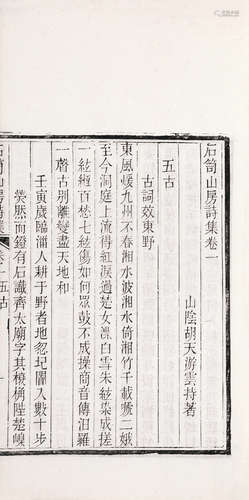 石笥山房詩集卷一
山陰胡天游雲持著
五古
古詞效東野
東風暖九州不春湘水波湘水倚湘竹千載嚬二娥
至今洞庭上流得紅淚過楚女漂白雪朱絃染成搓
一絃絙百愁七絃傷如何眾鼓不成操商音傳汨羅
一聲古別離變盡天地和
壬寅歲臨淄人耕于野者地忽圮圖入數十步
然而鐙有石識齊太廟字其榱桷陛
石笥山房詩集 卷一 五古